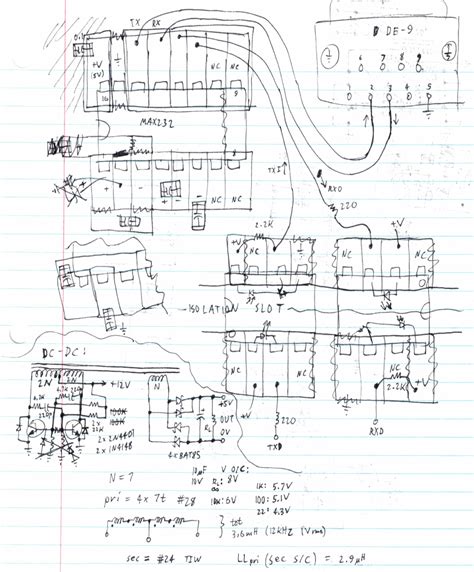 TX RX
D DE-9
0.1
+V
(5V)
NC NC
6 7 8 9
1 2 3 4 5
16 9
MAX232
NC
TXI
RXO
220
NC NC
2.2K
+V NC
+V
NC NC
ISOLATION SLOT
NC NC
2.2K
+V
220
TXD
RXD
DC-DC:
2N 2N
+12V
100K
2x 22K
100K
2x 2N4401
2x 1N4148
4x BAT85
+5V
OUT
0V
N = 7
pri = 4 x 7t #28
10µF V O/C:
10V RL: 8V
10K: 6V
1K: 5.7V
100: 5.1V
22: 4.3V
tot
3.6mH (12kHz (Vrms)
sec = #24 TIW
LLpri (sec S/C) = 2.9µH